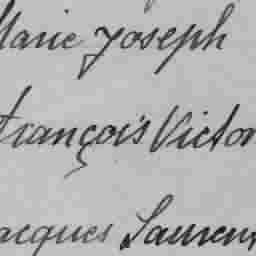 Marie Joseph
François Victor
Jacques Laurent